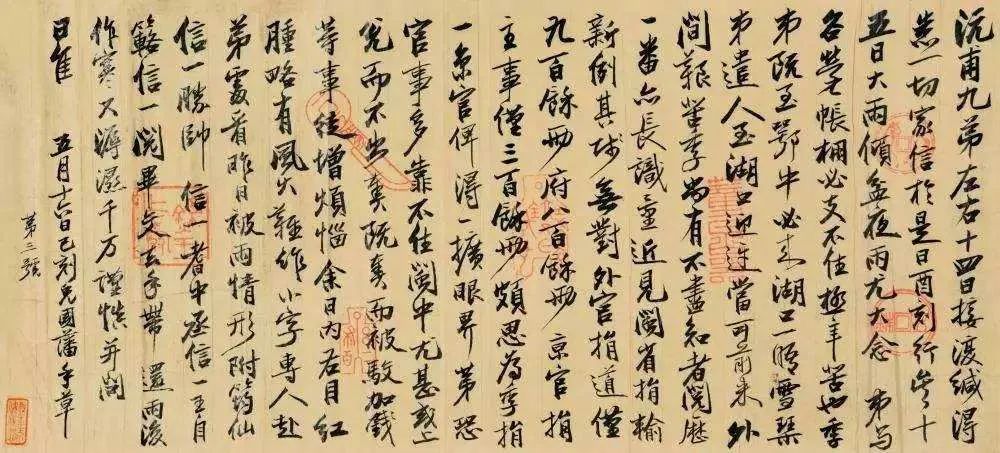 沅甫九弟左右十四日接渡緘得
悉一切家信於是日酉刻行十
五日大雨傾盆夜雨尤大念 弟与
各營帳棚必支不住極辛苦也季
弟既至鄂必来湖口一晤雪琴
弟遣人至湖口迎迓當可前来 外
間艱辛季尚有不盡知者閲歷
一番亦長識量近見閩省捐輸
新例其城無對外官捐道僅
九百餘兩府八百餘兩 京官捐
主事僅三百餘兩頗思為季捐
一京官俾得一擴眼界 第恐
官事多靠不住閩中尤甚或上
兌而不出奏既奏而被駁加錢
等事徒增煩惱余日内右目紅
腫略有風火難作小字專人赴
弟處看昨日被雨情形附筠仙
信一勝帥信一耆中丞信一王自
信一閲畢交去手帶還雨後
作寒又濕千万謹慎并问
日佳 五月十六日巳刻兄國藩手草
第三號